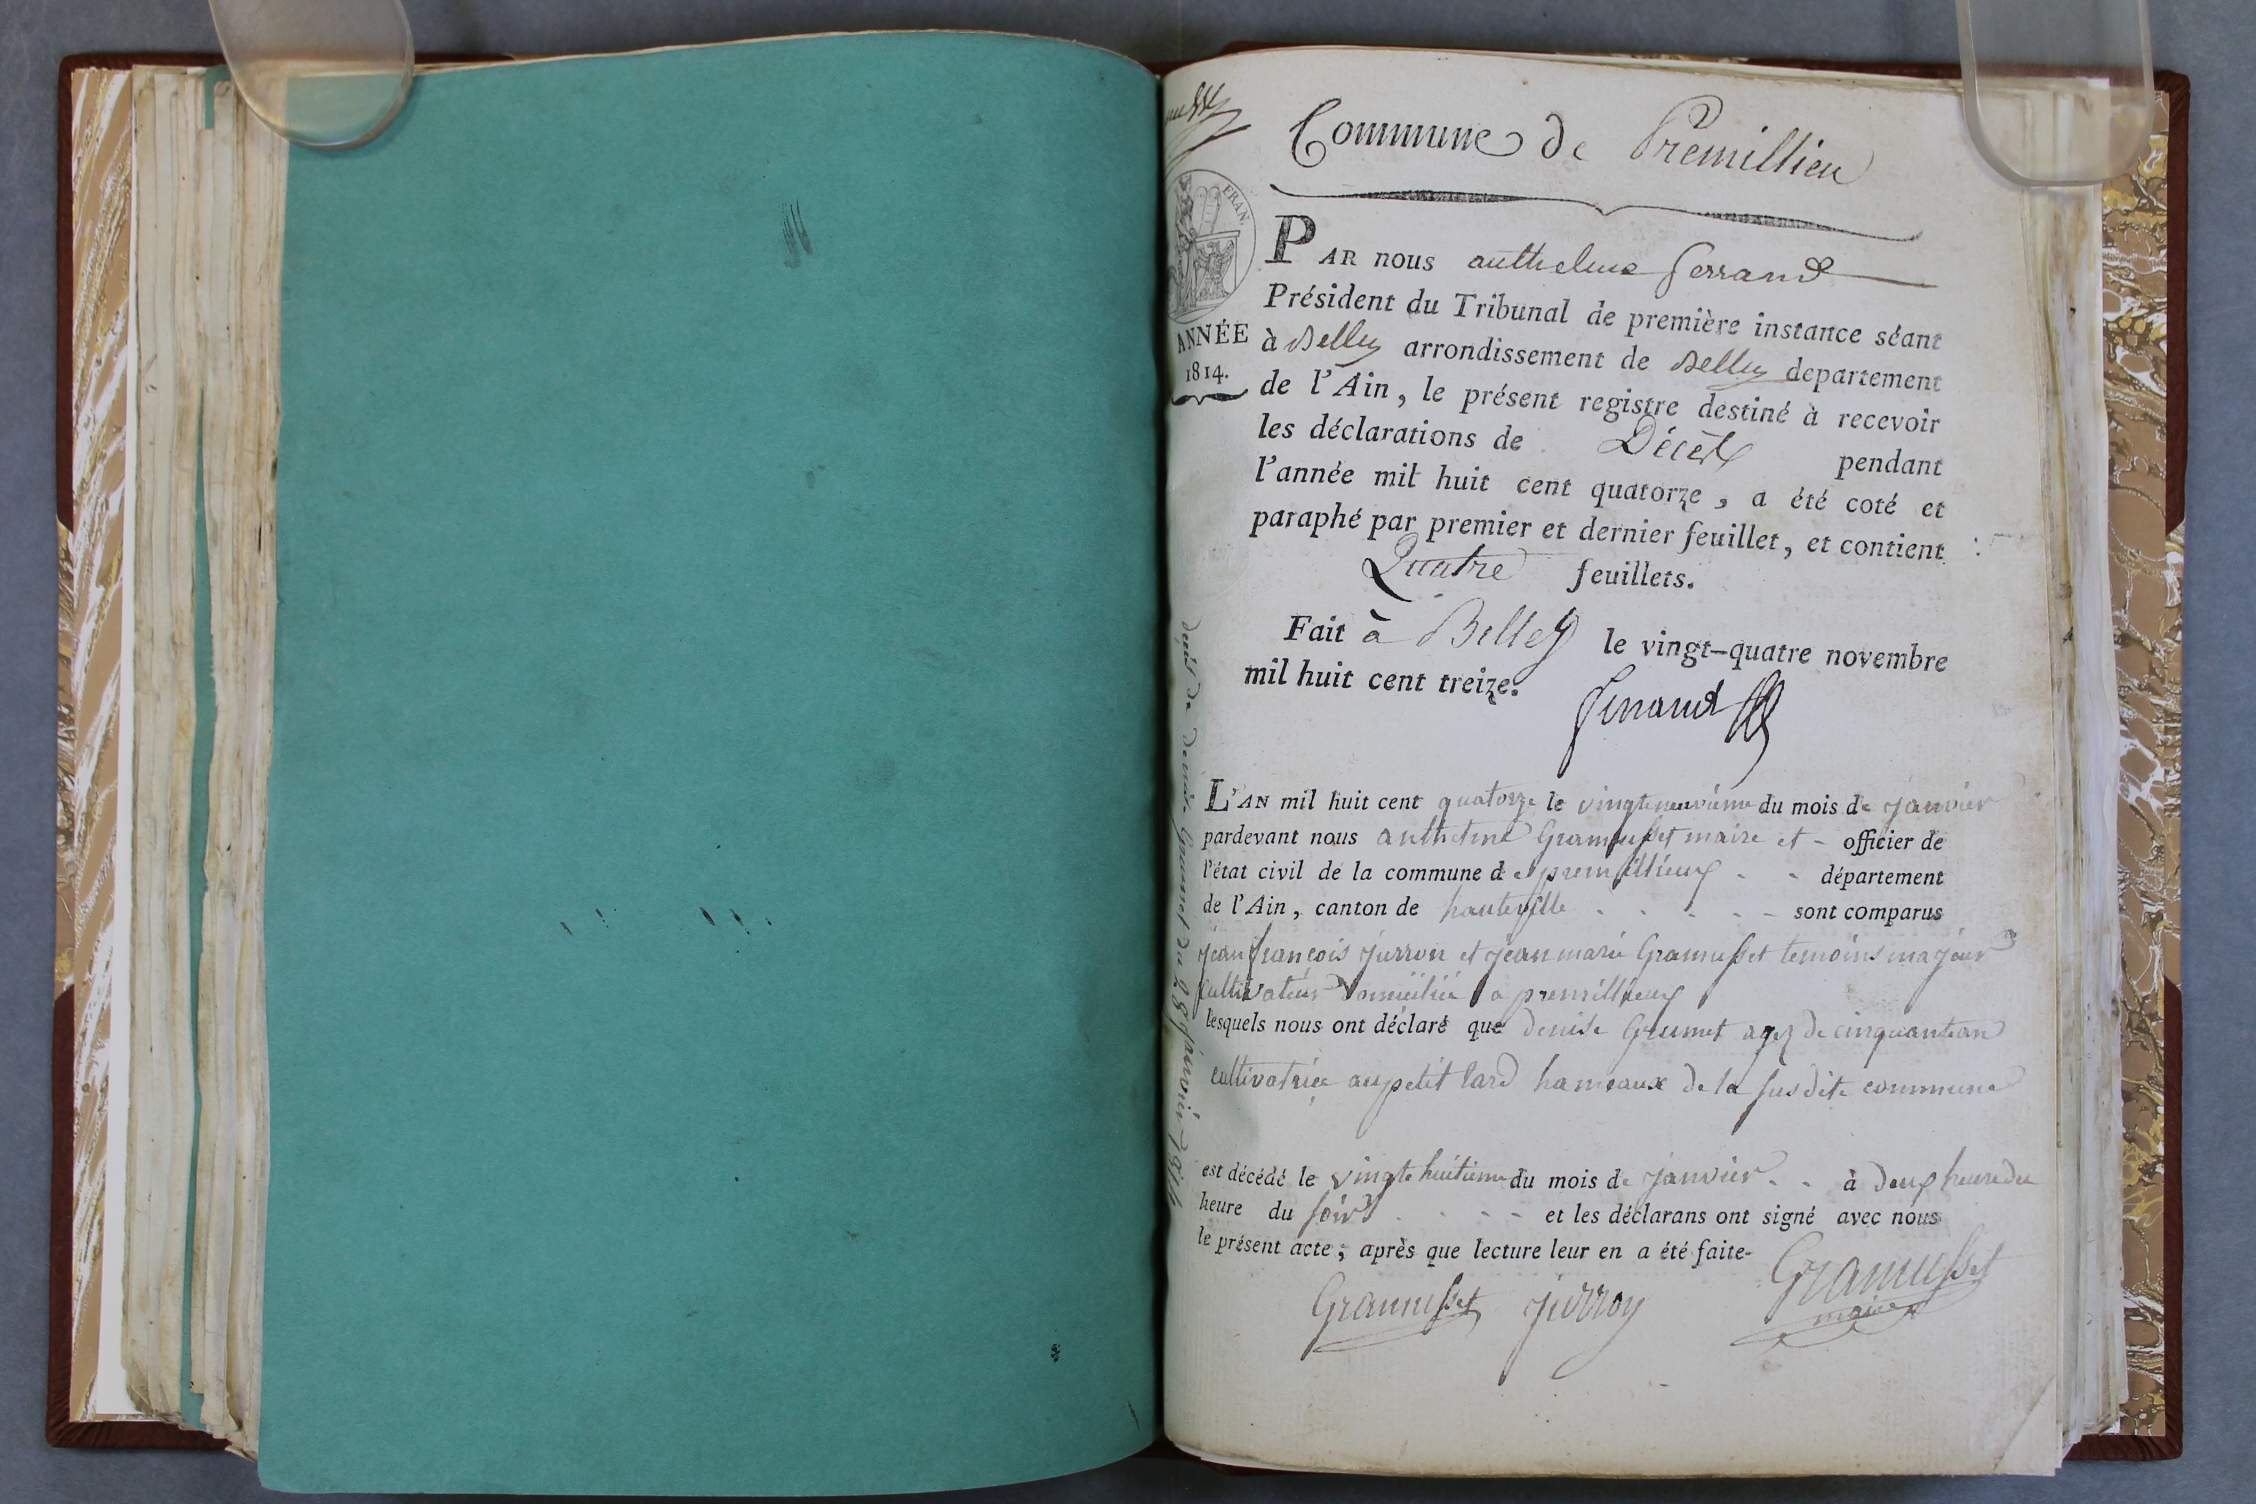 Commune de Premillieu
FRAN.
ANNÉE
1814.
PAR nous anthelme ferrand
Président du Tribunal de première instance séant
à Belley arrondissement de Belley departement
de l'Ain, le présent registre destiné à recevoir
les déclarations de Décès pendant
l'année mil huit cent quatorze, a été coté et
paraphé par premier et dernier feuillet, et contient
Quatre feuillets.
Fait à Belley le vingt-quatre novembre
mil huit cent treize.
ferrand
L'AN mil huit cent quatorze le vingtneuvieme du mois de janvier
pardevant nous anthelme Gramusset maire et - officier de
l'état civil de la commune de premillieux - - département
de l'Ain, canton de hauteville - - - - - sont comparus
jean françois jurron et jean marie Gramusset temoins majeur
cultivateur domicilié a premillieux
lesquels nous ont déclaré que denise Grumet agez de cinquante an
cultivatrice au petit lard hameaux de la susdite commune
est décédé le vingt huitieme du mois de janvier - - à deux heure du
heure du soir - - - - et les déclarans ont signé avec nous
le présent acte, après que lecture leur en a été faite-
Gramusset jurroy Gramusset
maire
décès de denise Grumet du 28 janvier 1814